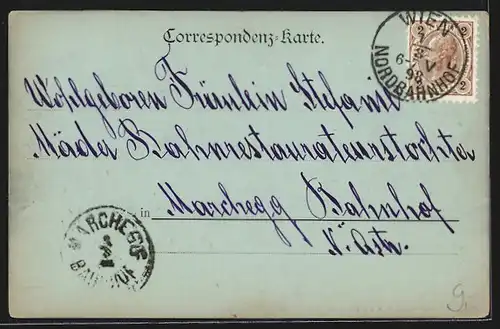 Correspondenz-Karte.
WIEN
NORDBAHNHOF
98
2 2
Wohlgeboren Fräulein Stefanie
Mäda Bahnrestaurateurstochter
in Marchegg Bahnhof
N. Östr.
MARCHEGG
BAHNHOF
9.